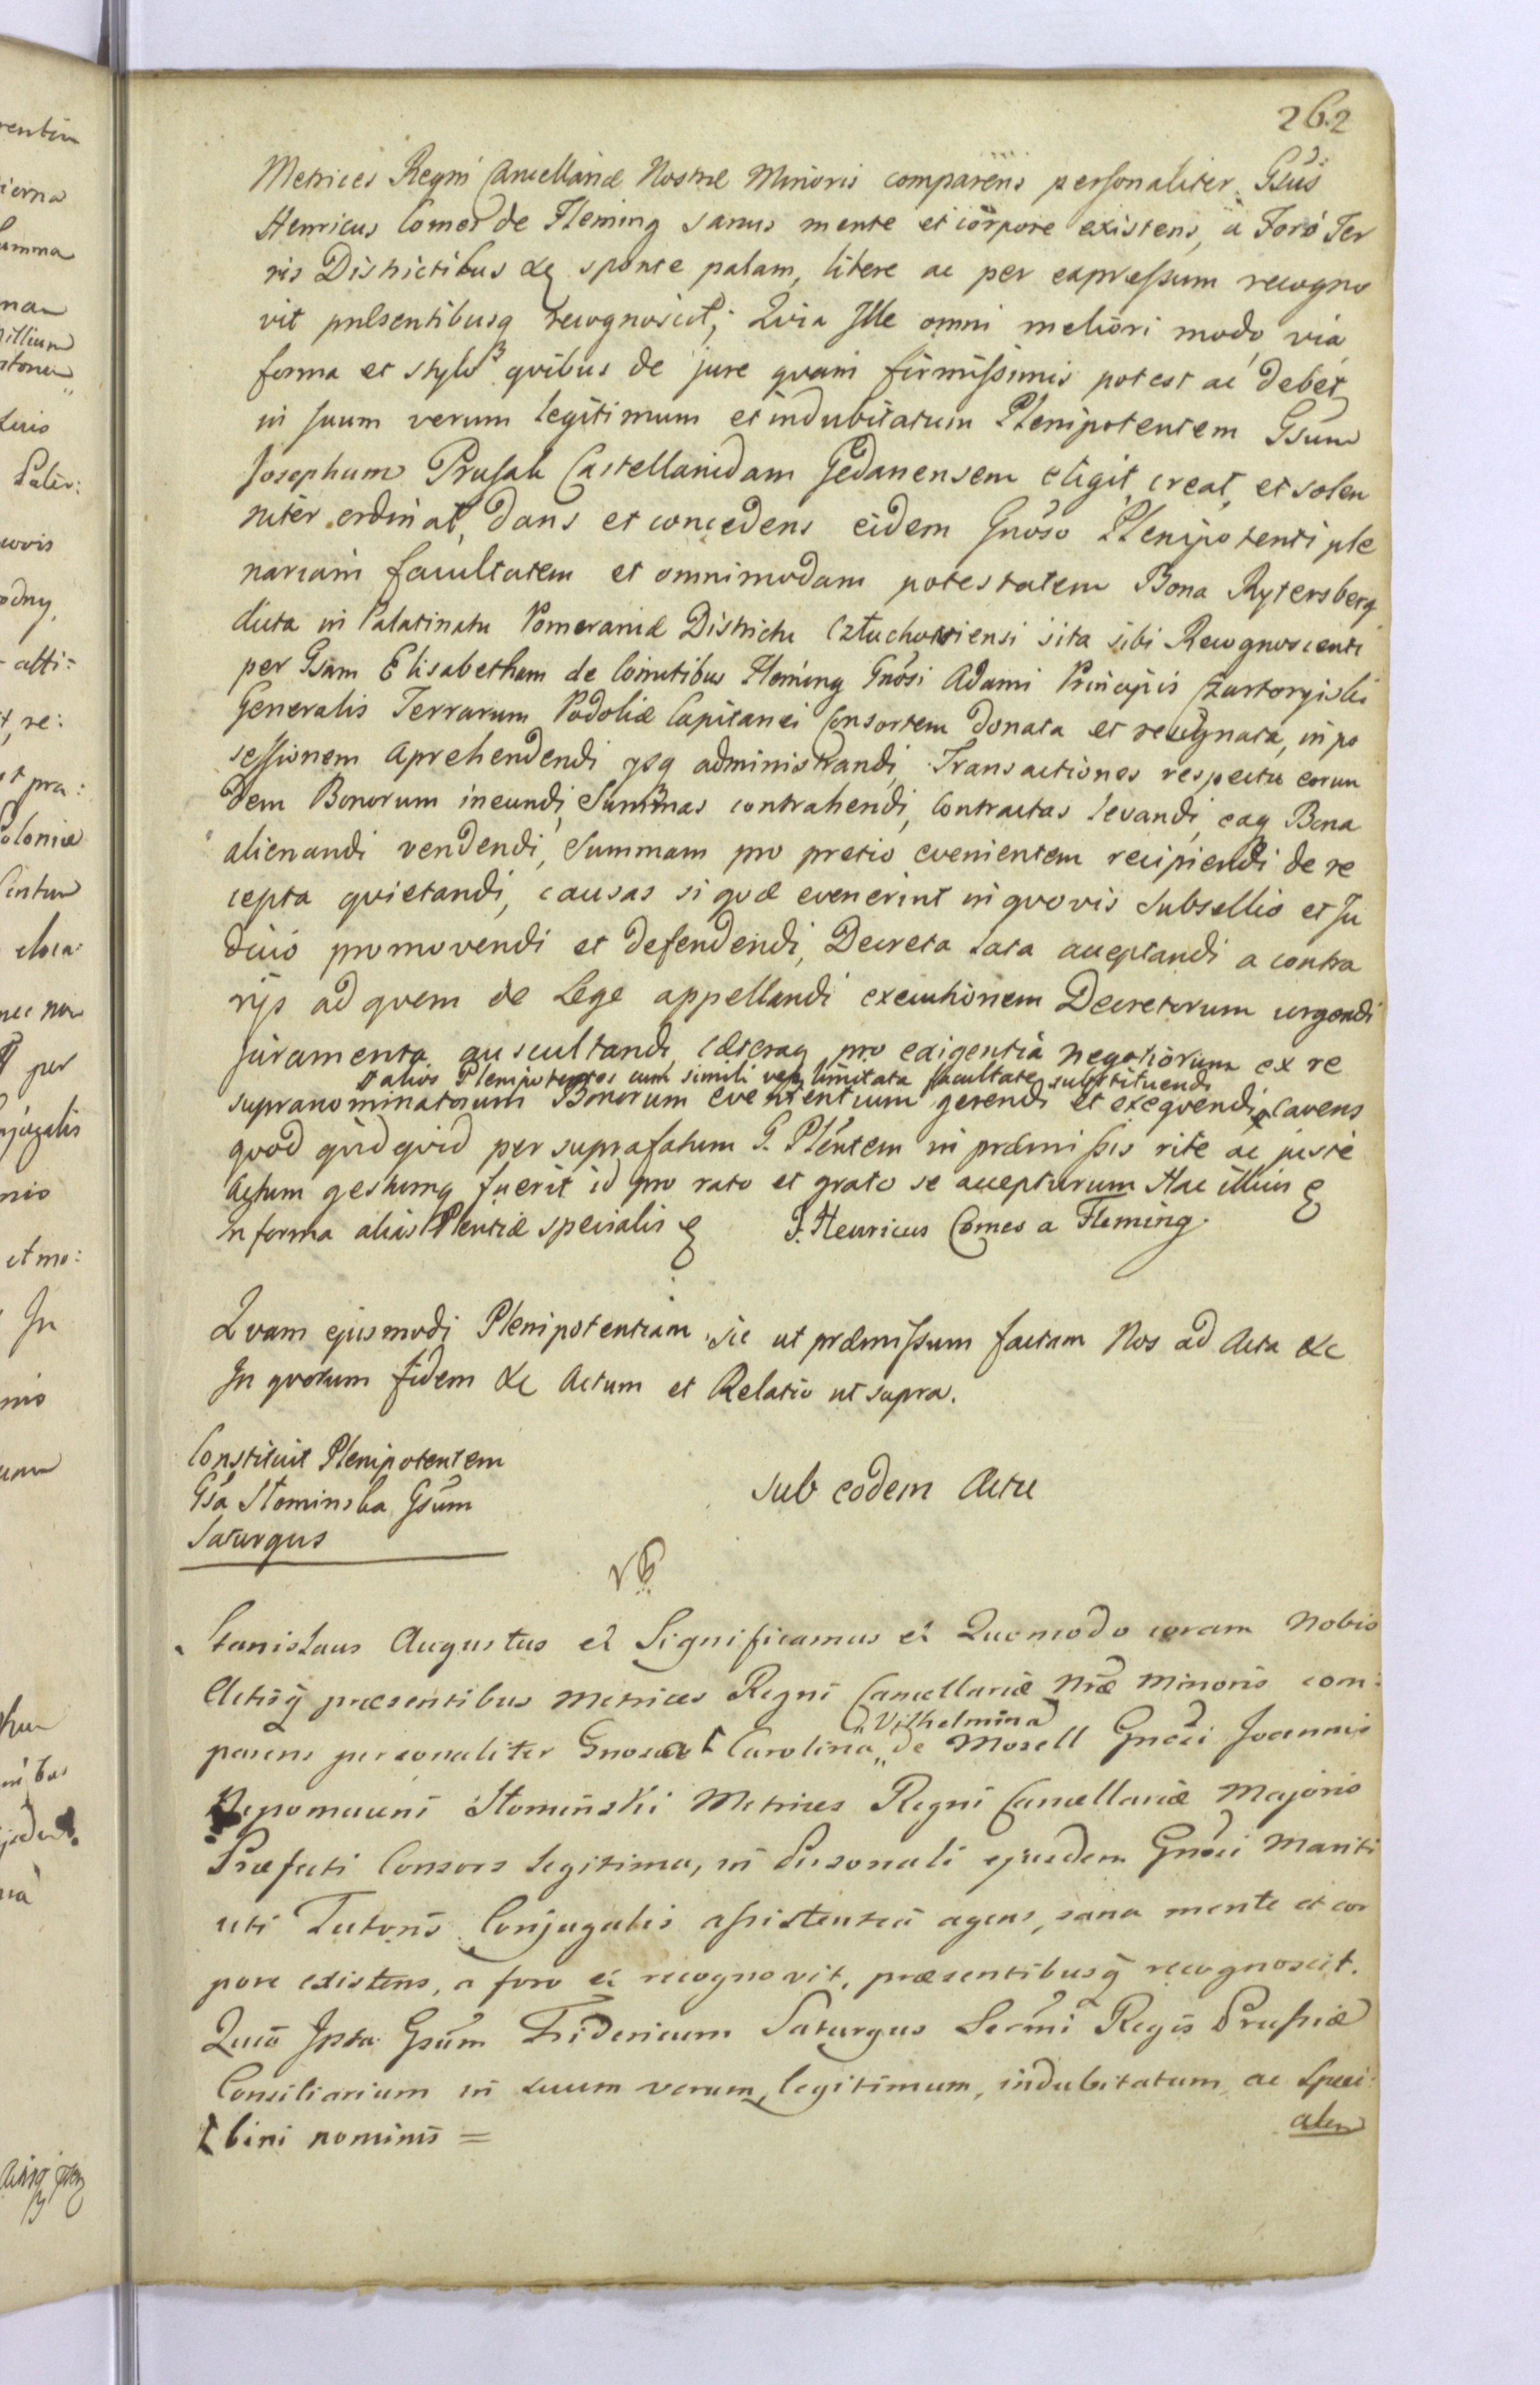 262
Metrices Regni Cancellariæ Nostræ Minoris comparens personaliter Gsus
Henricus Comes de Fleming sanus mente et corpore existens, a Foro Ter
ris Districtibus &c sponte palam, libere ac per expressum recogno
vit præsentibusq recognoscit; Quia Ille omni meliori modo via
forma et stylo quibus de jure quam firmissimis potest ac debet
in suum verum legitimum et indubitatum Plenipotentem Gsum
Josephum Prusak Castellanidam Gedanensem eligit, creat, et solen
niter ordinat, dans et concedens eidem Gnoso Plenipotenti ple
nariam facultatem et omnimodam potestatem Bona Rytersberg
dicta in Palatinatu Pomeraniæ Districtu Człuchoviensi sita sibi Recognoscenti
per Gsam Elisabetham de Comitibus Fleming Gnosi Adami Principis Czartoryiski
Generalis Terrarum Podoliæ Capitanei Consortem donata et resignata, in po
sessionem aprehendendi ysq administrandi, Transactiones respectu eorun
dem Bonorum ineundi, Summas contrahendi, contractas levandi, eaq Bona
alienandi vendendi, Summam pro pretio evenientem recipiendi de re
cepta quietandi, causas si quæ evenerint in quovis Subsellio et Ju
dicio promovendi et defendendi, Decreta lata acceptandi a contra
rijs ad quem de Lege appellandi executionem Decretorum urgendi
juramenta auscultandi cæteraq pro exigentia negotiorum ex re
alios Plenipotentes cum simili vel limitata facultate substituendi
supranominatorum Bonorum evenientium gerendi et exequendi, Cavens
quod quidquid per suprafatum G. Plentem in præmissis rite ac juste
actum gestumq fuerit id pro rato et grato se accepturum Hac illius &
In forma alias Plentiæ specialis & J. Henricus Comes a Fleming.
Quam ejusmodi Plenipotentiam sic ut præmissum factam Nos ad Acta &c
In quorum fidem &c Actum et Relatio ut supra.
Constituit Plenipotentem
Gsa Słominska Gsum
Saturgus
sub eodem Actu
Stanislaus Augustus et Significamus et Quomodo coram Nobis
Actisq præsentibus Metrices Regni Cancellariæ Nræ Minoris com:
Vilhelmina
parens personaliter Gnosa Carolina de Mosell Gnosi Joannis
Nepomuceni Słominski Metrices Regni Cancellariæ Majoris
Præfecti Consors legitima, in Personali ejusdem Gnosi Mariti
uti Tutoris Conjugalis assistentia agens, sana mente et cor
pore existens, a foro et recognovit, præsentibusq recognoscit.
Quia Ipsa Gsum Fridericum Saturgus Sermi Regis Prussiæ
Consiliarium in suum verum, legitimum, indubitatum, ac Speci:
bini nominis =
alem